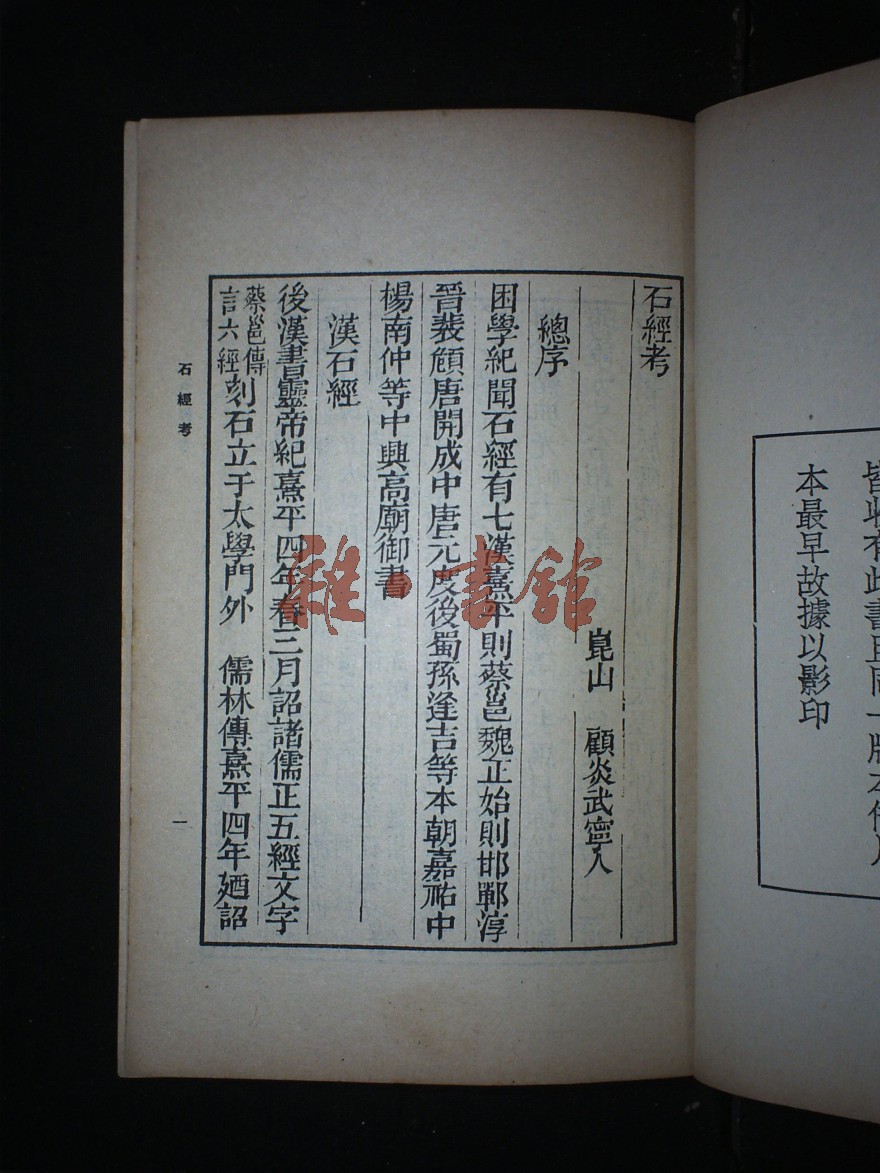 皆收有此書且同一版本係凡
本最早故據以影印
石經考
崑山 顧炎武寧人
總序
困學紀聞石經有七漢熹平則蔡邕魏正始則邯鄲淳
晉裴頠唐開成中唐元度後蜀孫逢吉等本朝嘉祐中
楊南仲等中興高廟御書
漢石經
後漢書靈帝紀熹平四年春三月詔諸儒正五經文字
蔡邕傳
言六經
刻石立于太學門外 儒林傳熹平四年廼詔
石經考
一
雜·書館